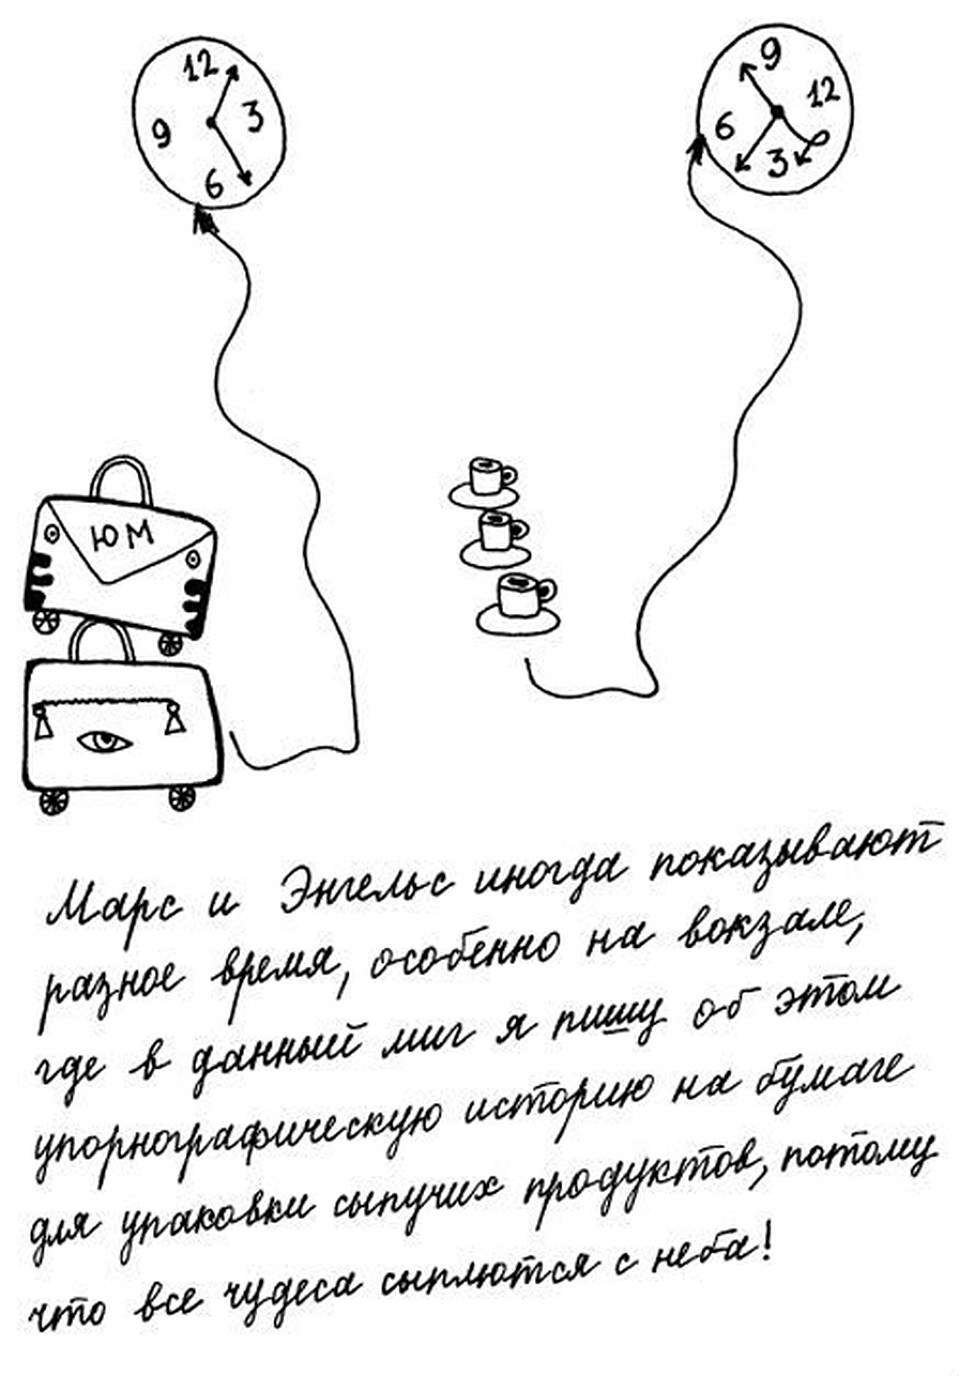 12
3
6
9
9
12
3
6
ЮМ
Марс и Энгельс иногда показывают
разное время, особенно на вокзале,
где в данный миг я пишу об этом
упорнографическую историю на бумаге
для упаковки сыпучих продуктов, потому
что все чудеса сыплются с неба!